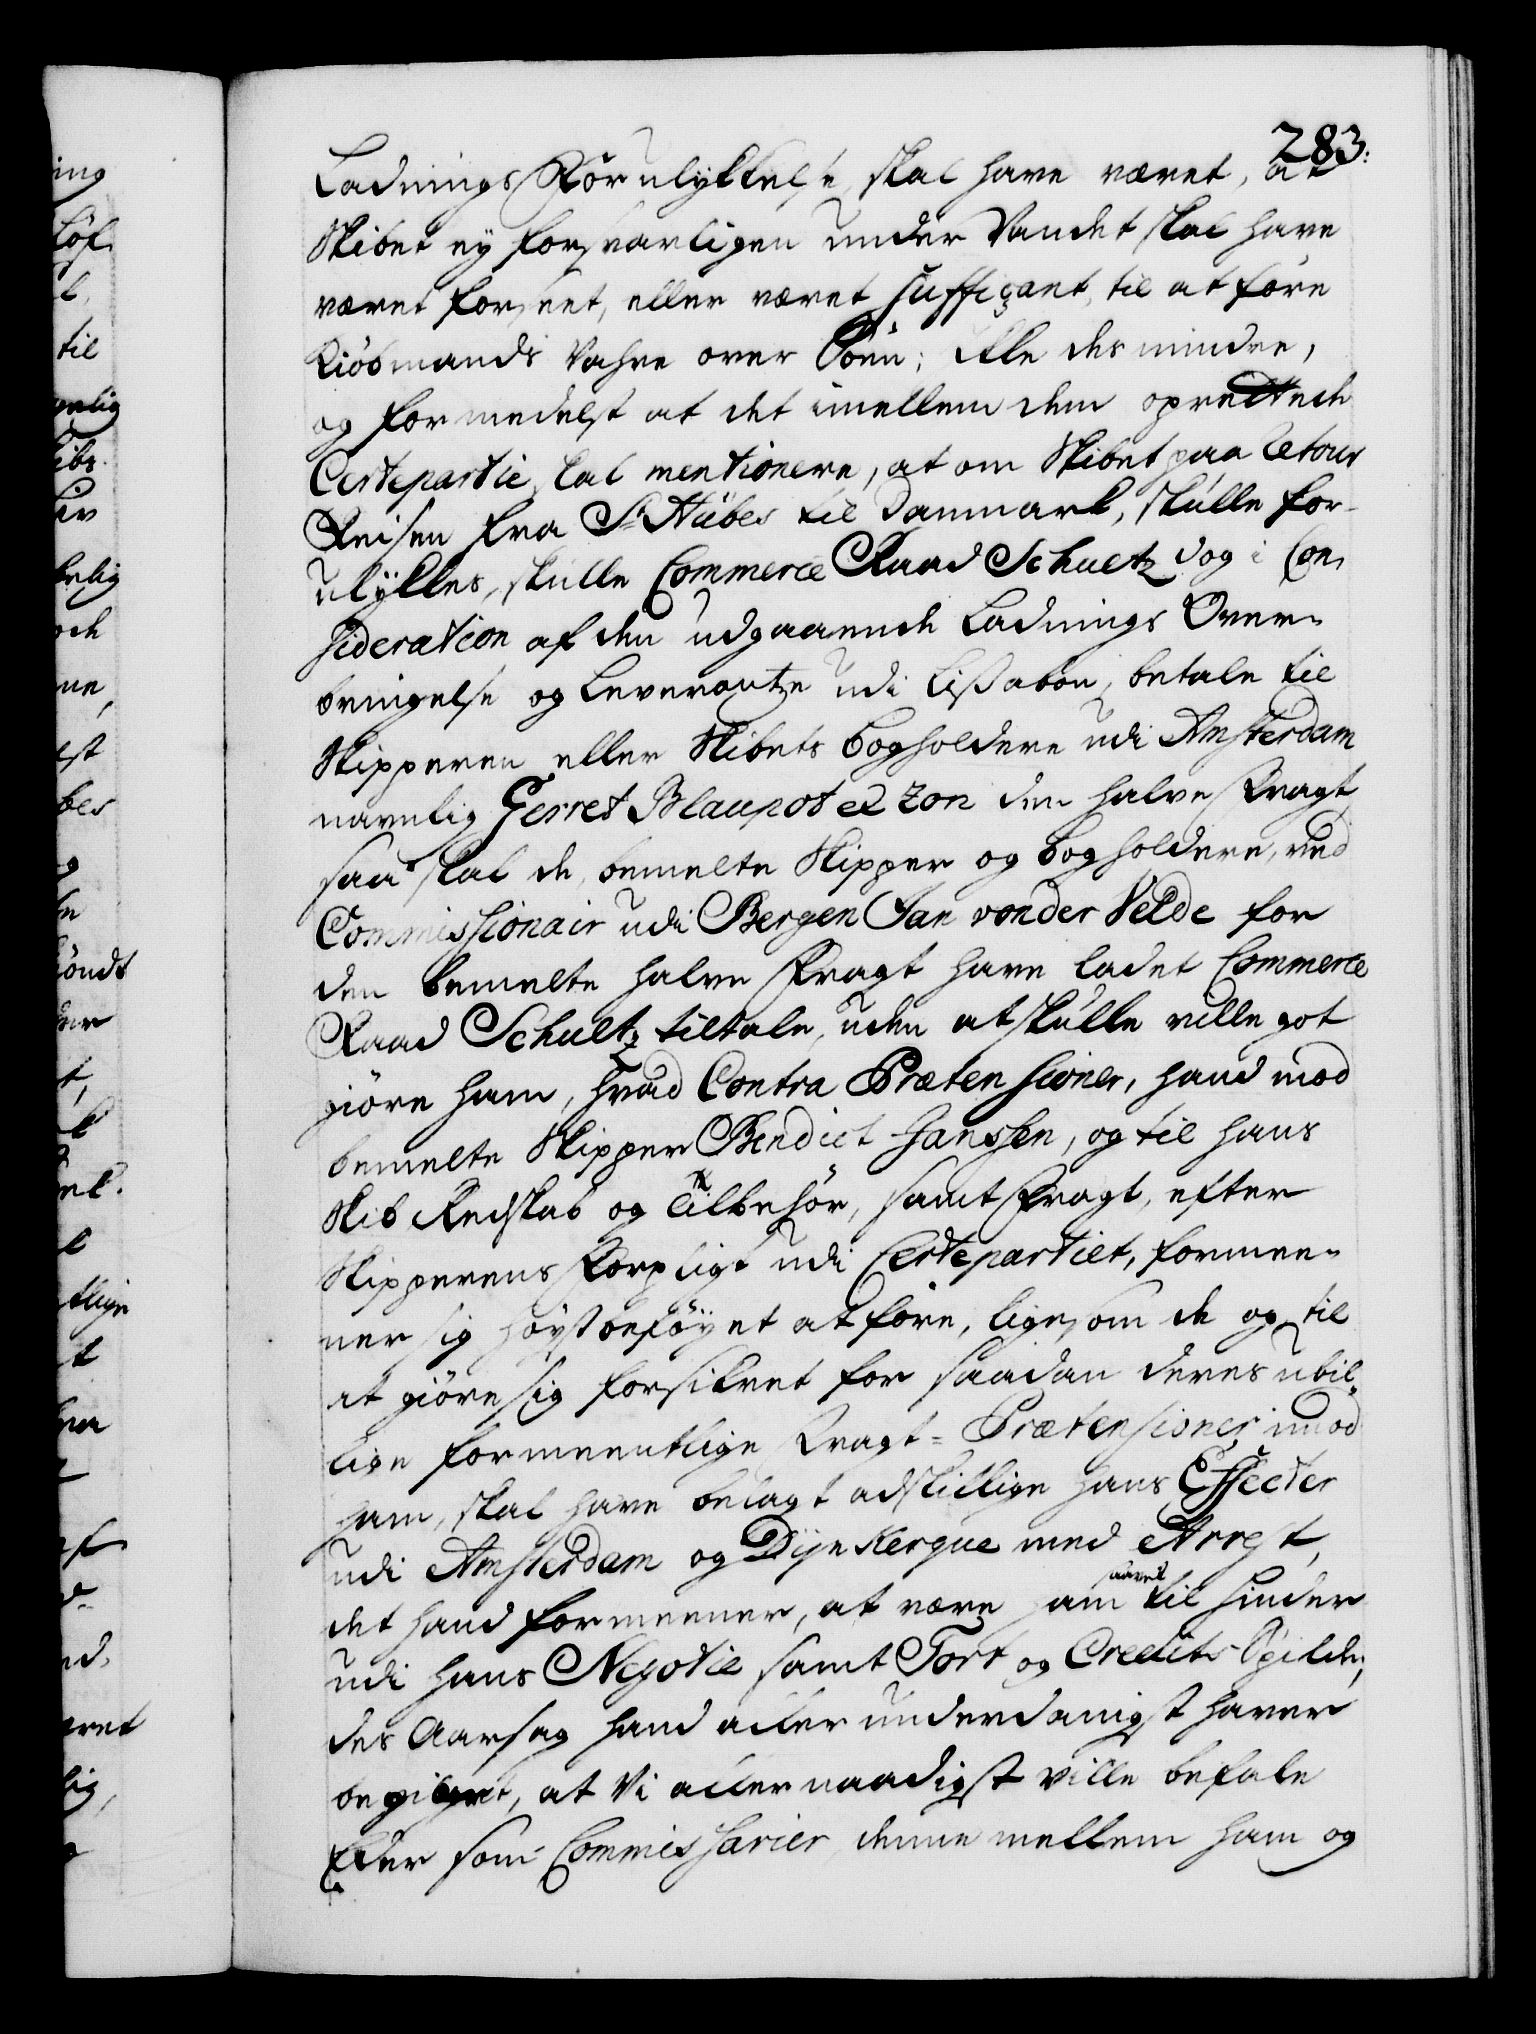 283.
Ladnings Forulykkelse, skal have været, at
Skibet ey forsvarligen under Vandet skal have
været forseet, eller været sufficant til at føre
Kiöbmands Vahre over Söen; Ikke des mindre,
og formedelst at det imellem dem oprettede
Certepartie skal mentionere, at om Skibet paa Retour
Reisen fra St. Hübes til Danmark, skulle for-
ulykkes, skulle Commerce Raad Schultz dog i Con-
sideration af den udgaaende Ladnings Over-
bringelse og Leverantze udi Lissabon, betale til
Skipperen eller Skibets Bogholdere udi Amsterdam
navnlig Gerret Blaupot et zon den halve Fragt,
saa skal de, bemelte Skipper og Bogholdere, ved
Commissionair udi Bergen Jan von der Velde for
den bemelte halve Fragt have ladet Commerce
Raad Schultz tiltale, uden at skulle ville got
giöre ham, hvad Contra Prætensioner, hand mod
bemelte Skipper Bendict Hanssen, og til hans
Skib Redskab og Tilbehör, samt Fragt, efter
Skipperens Forpligt udi Certepartiet, formee-
ner sig höystbeföyet at före, ligesom de og til
at giöre sig forsikret for saadan deres ubil-
lige formeentlige Fragt-Prætensioner imod
ham, skal have belagt adskillige hans Effecter
udi Amsterdam og Dynkerque med Arrest,
det hand formeener, at være ham saavel til Hinder
udi hans Negotie samt Tort og Credits Spilde,
des Aarsag hand allerunderdanigst haver
begiæret, at Vi allernaadigst ville befale
Eder som Commissarier, denne mellem ham og